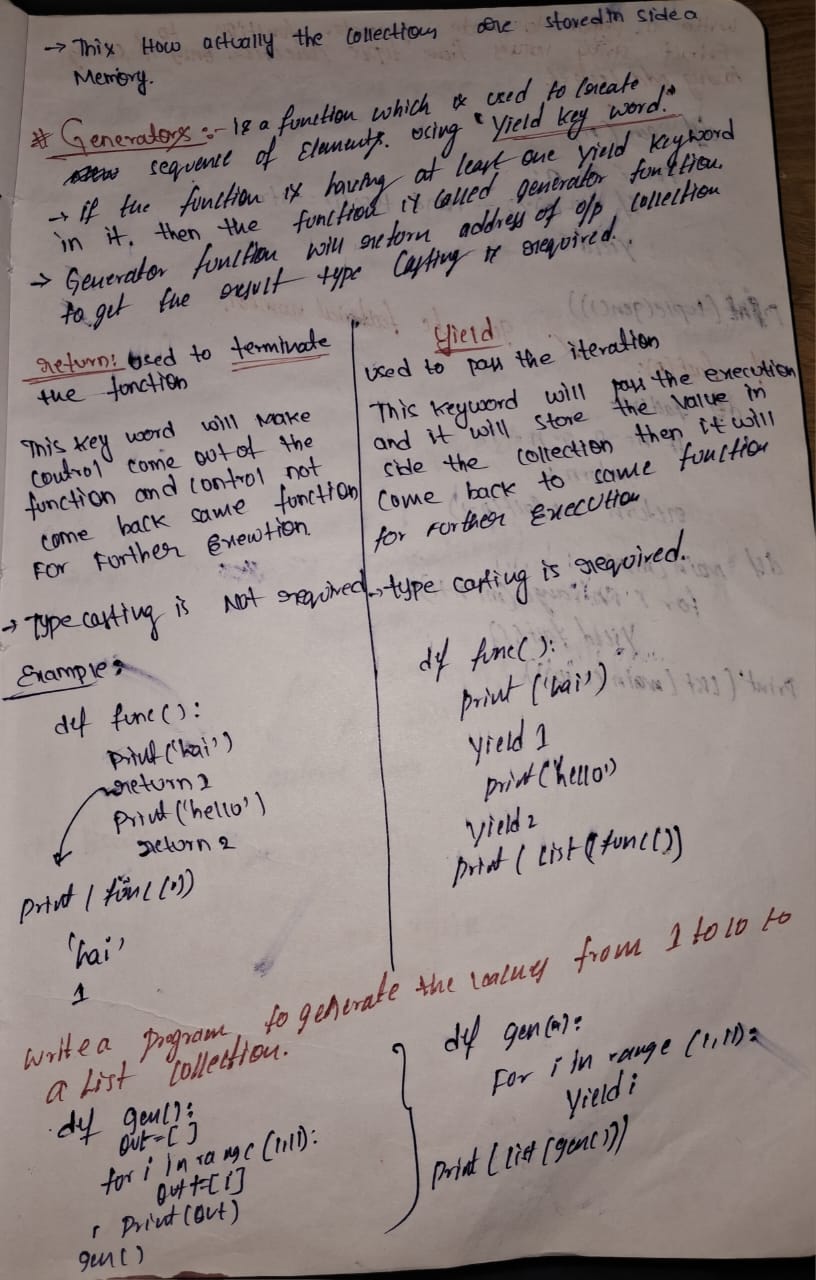 → This How actually the collections are stored in side a
Memory.
# Generators :- Is a function which is used to Create
sequence of Elements. using "Yield key word."
→ if the function is having at least one yield keyword
in it. then the function is called generator function.
→ Generator function will return address of o/p collection
to get the result type Casting is required.
return: Used to terminate
the function
This key word will Make
control come out of the
function and control not
come back same function
For Further Execution
→ Type casting is Not required
Example:
def func():
print('hai')
return 1
Print('hello')
return 2
Print(func())
'hai'
1
Yield
used to pass the iteration
This keyword will pass the execution
and it will store the value in
side the collection then it will
come back to same function
for Further Execution
→ type casting is required.
def func():
print('hai')
yield 1
print('hello')
yield 2
print(list(func())
Write a program to generate the values from 1 to 10 to
a List Collection.
def gen():
out=[]
for i in range(1,11):
out+=[i]
Print(out)
gen()
def gen():
For i in range (1,11):
Yield i
Print(list(gen()))